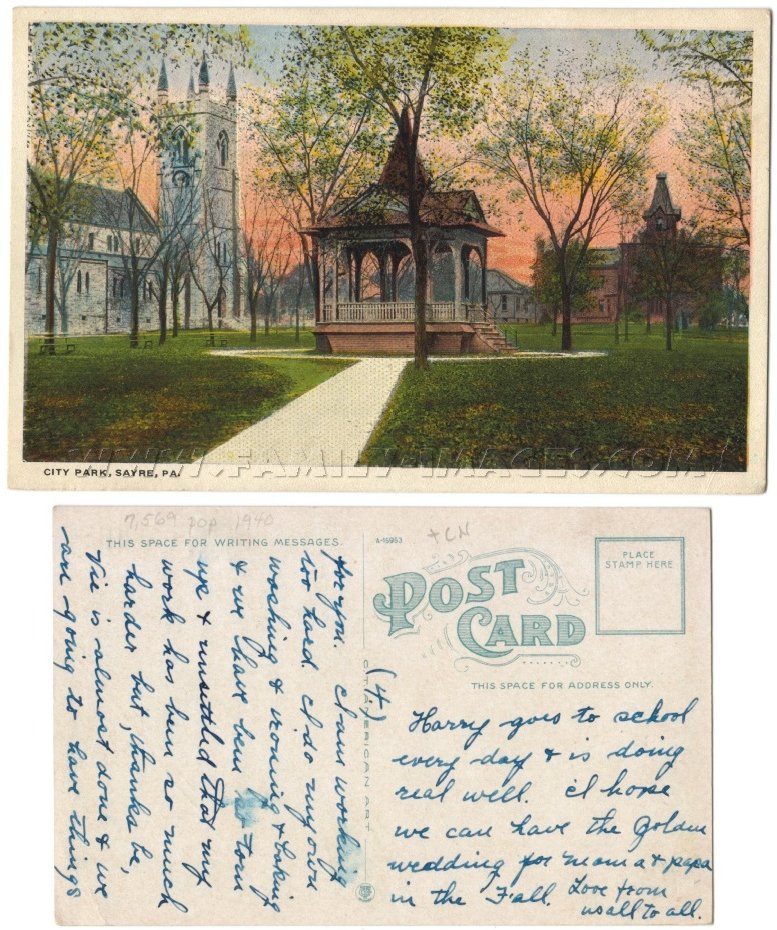 WWW.FAMILY-IMAGES.COM
CITY PARK, SAYRE, PA.
7,569 pop 1940
THIS SPACE FOR WRITING MESSAGES.
for you. I am working
too hard. I do my own
washing & ironing & baking
& we have been torn
up & unsettled that my
work has been so much
harder but, thanks be,
Vie is almost done & we
are going to have things
A-15953
POST
CARD
PLACE
STAMP HERE
THIS SPACE FOR ADDRESS ONLY.
C.T. AMERICAN ART
(4)
Harry goes to school
every day & is doing
real well. I hope
we can have the Golden
wedding for mama & papa
in the Fall. Love from
us all to all.